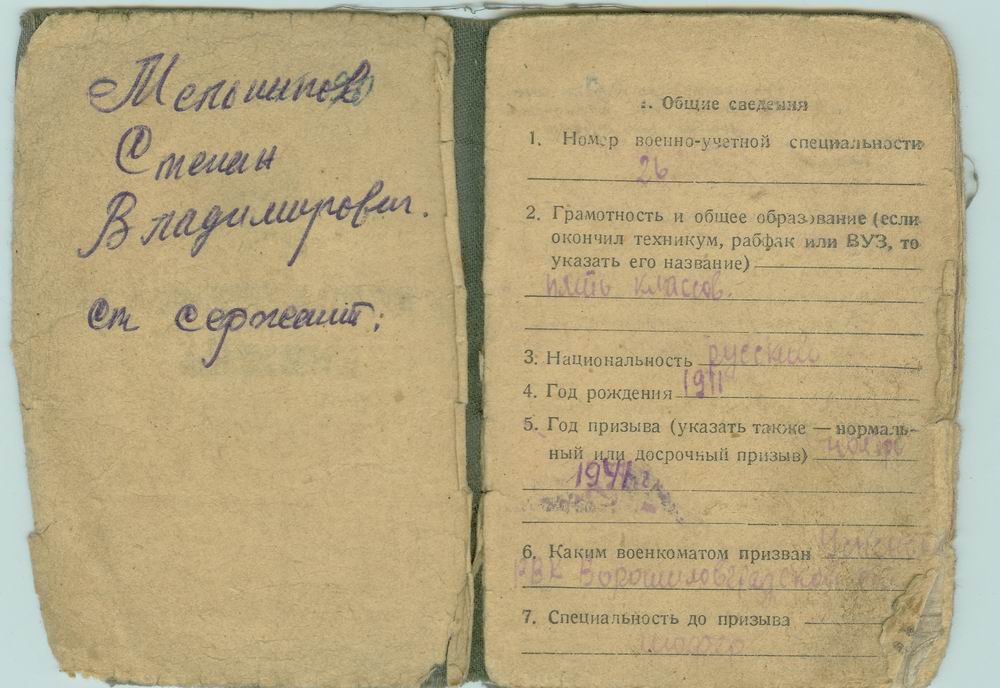 Мельников
Степан
Владимирович.
ст сержант.
I. Общие сведения
1. Номер военно-учетной специальности
26
2. Грамотность и общее образование (если
окончил техникум, рабфак или ВУЗ, то
указать его название)
пять классов.
3. Национальность русский
4. Год рождения 1911
5. Год призыва (указать также — нормаль-
ный или досрочный призыв)
1941
6. Каким военкоматом призван
РВК Ворошиловградской
7. Специальность до призыва
шофер